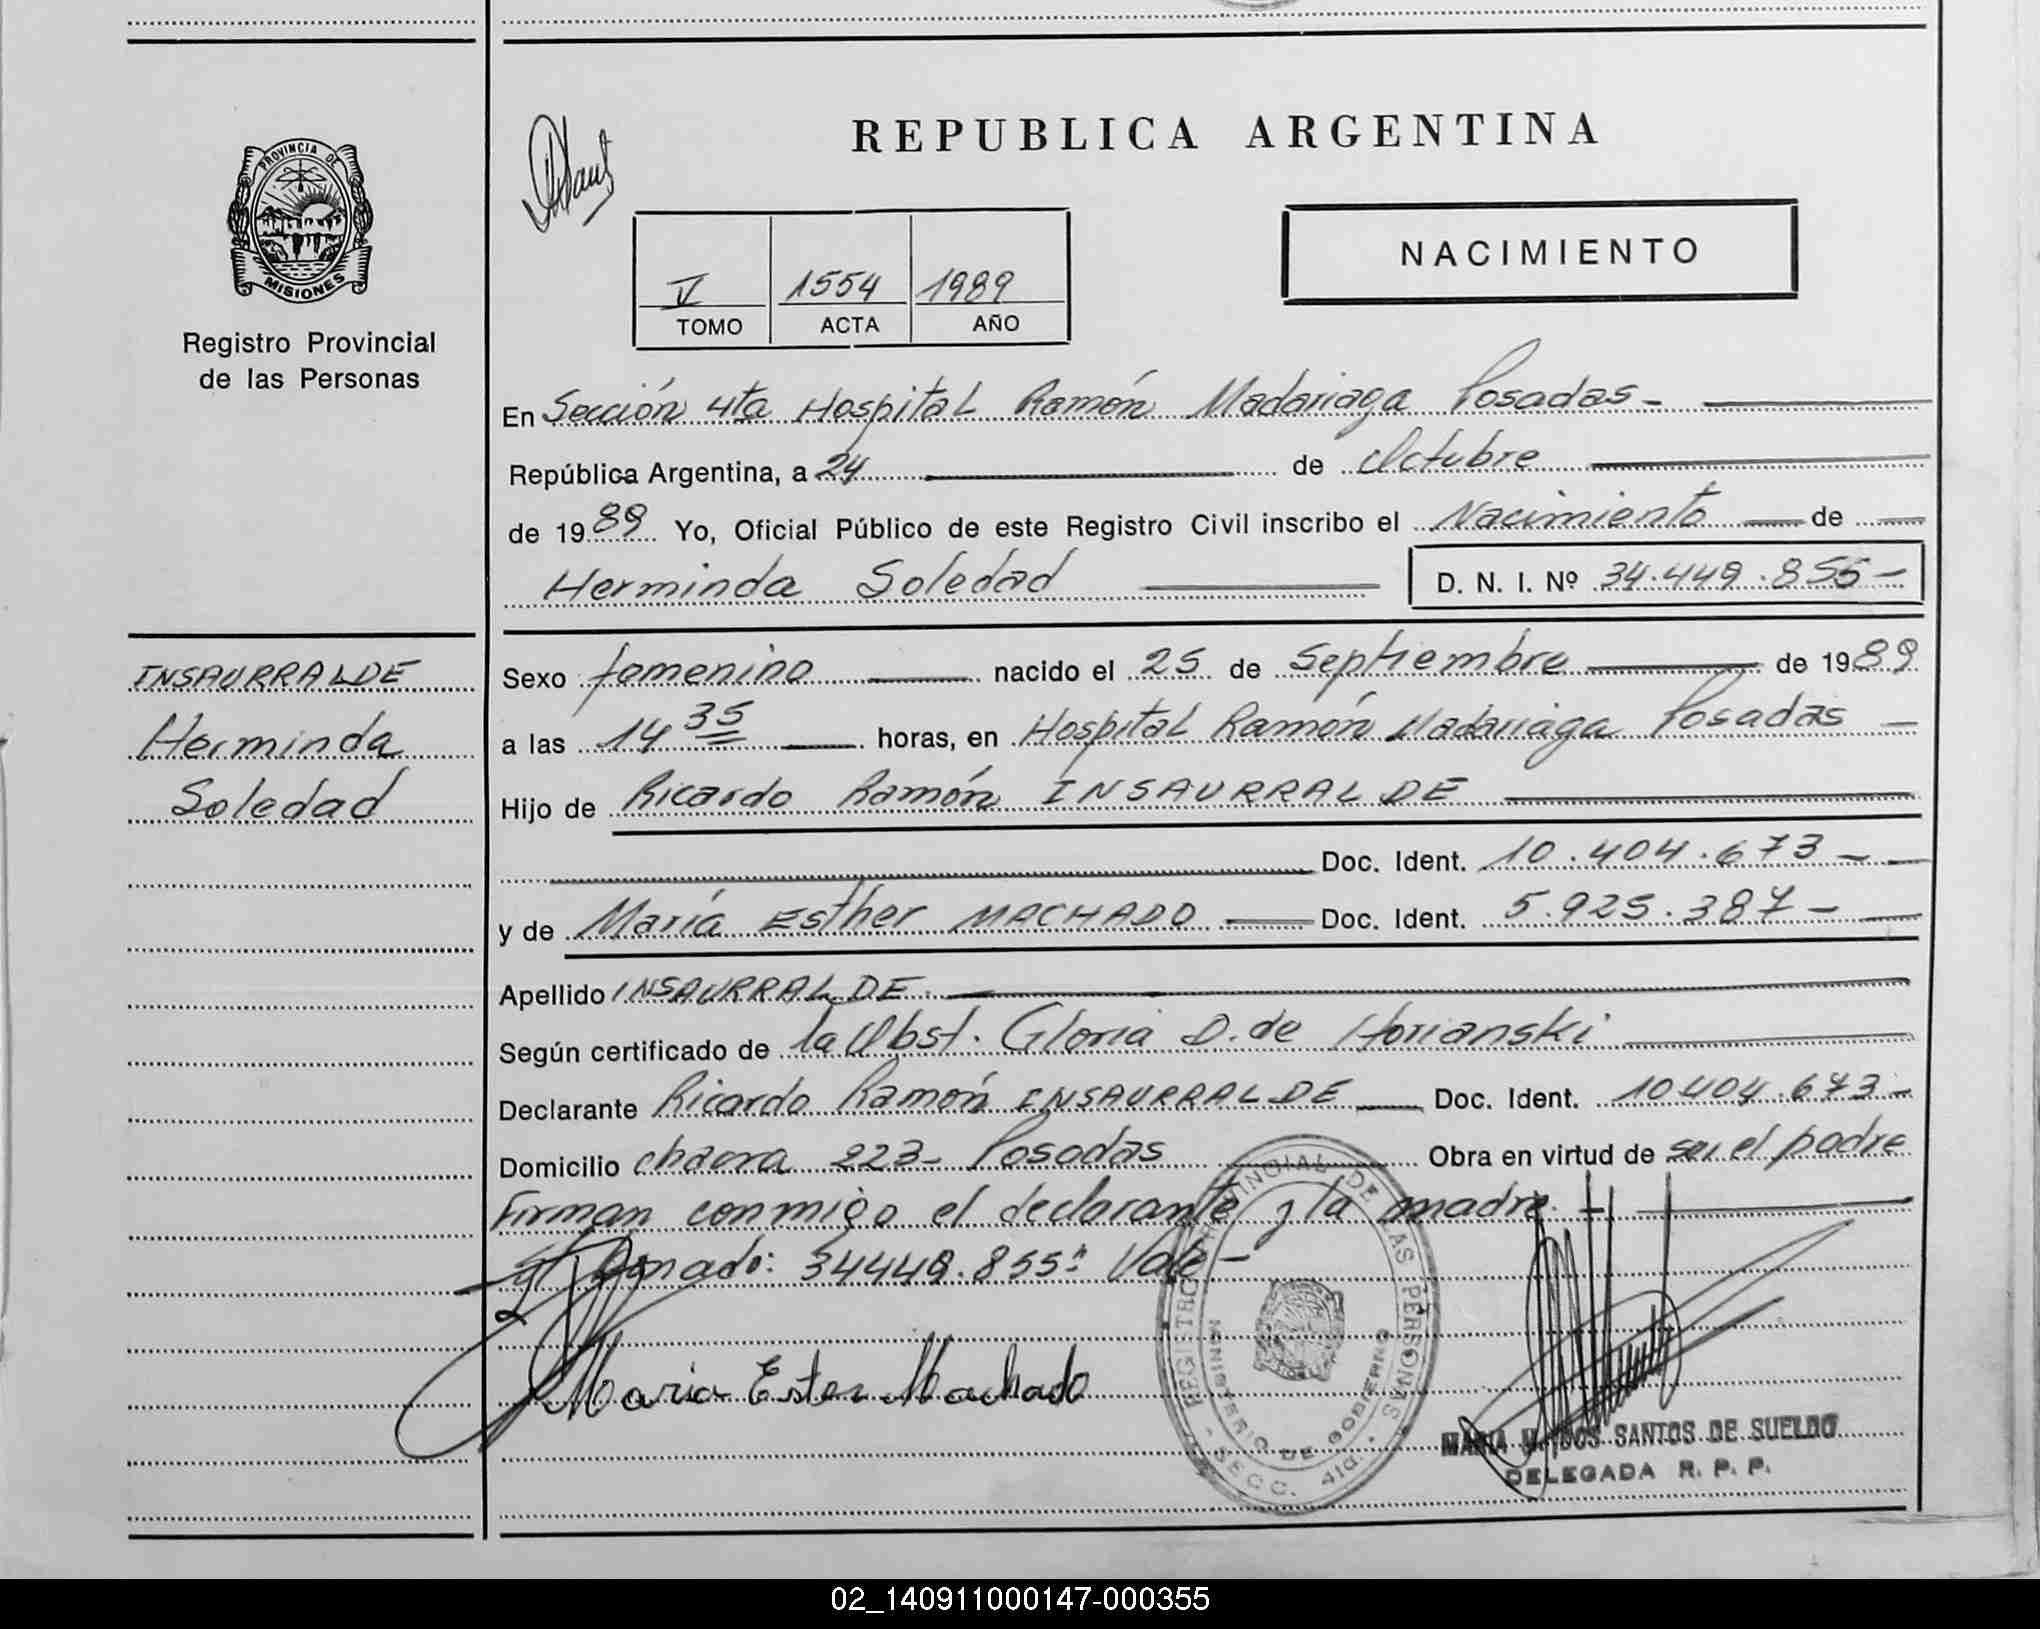 REPUBLICA ARGENTINA
PROVINCIA DE
MISIONES
Registro Provincial
de las Personas
NACIMIENTO
V 1554 1989
TOMO ACTA AÑO
En Sección 4ta Hospital Ramón Madariaga Posadas-
República Argentina, a 24 de Octubre
de 1989 Yo, Oficial Público de este Registro Civil inscribo el Nacimiento de
Herminda Soledad D. N. I. Nº 34.449.855-
INSAURRALDE
Herminda
Soledad
Sexo femenino nacido el 25 de Septiembre de 1989
a las 14 35 horas, en Hospital Ramón Madariaga Posadas
Hijo de Ricardo Ramón INSAURRALDE
Doc. Ident. 10.404.673-
y de María Esther MACHADO Doc. Ident. 5.925.387-
Apellido INSAURRALDE
Según certificado de la Obst. Gloria D. de
Declarante Ricardo Ramón INSAURRALDE Doc. Ident. 10404.673-
Domicilio chacra 223- Posadas Obra en virtud de ser el padre
Firman conmigo el declarante y la madre.
34449.855: Vale-
Maria Ester Machado
REGISTRO PROVINCIAL DE LAS PERSONAS
MINISTERIO DE GOBIERNO
SECC. 4ta.
MARIA DOS SANTOS DE SUELDO
DELEGADA R. P. P.
02_140911000147-000355